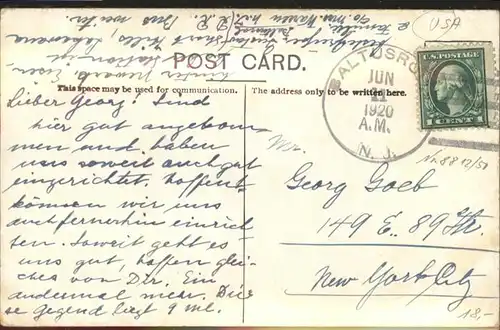 USA
POST CARD.
This space may be used for communication.
The address only to be written here.
BALTUSROL
JUN
11
1920
A.M.
N. J.
U.S. POSTAGE
1 CENT 1
Lieber Georg! Sind
hier gut angekom-
men und haben
uns soweit auch gut
eingerichtet. Hoffent.
können wir uns
auch fernerhin einrich
ten. Soweit geht es
uns gut, hoffen glei-
ches von Dir. Ein
andermal mehr. Die
se Gegend liegt 9 ml.
Mr.
Georg Goeb
149 E. 89 Str.
New York City
No 88 12/51
18,-